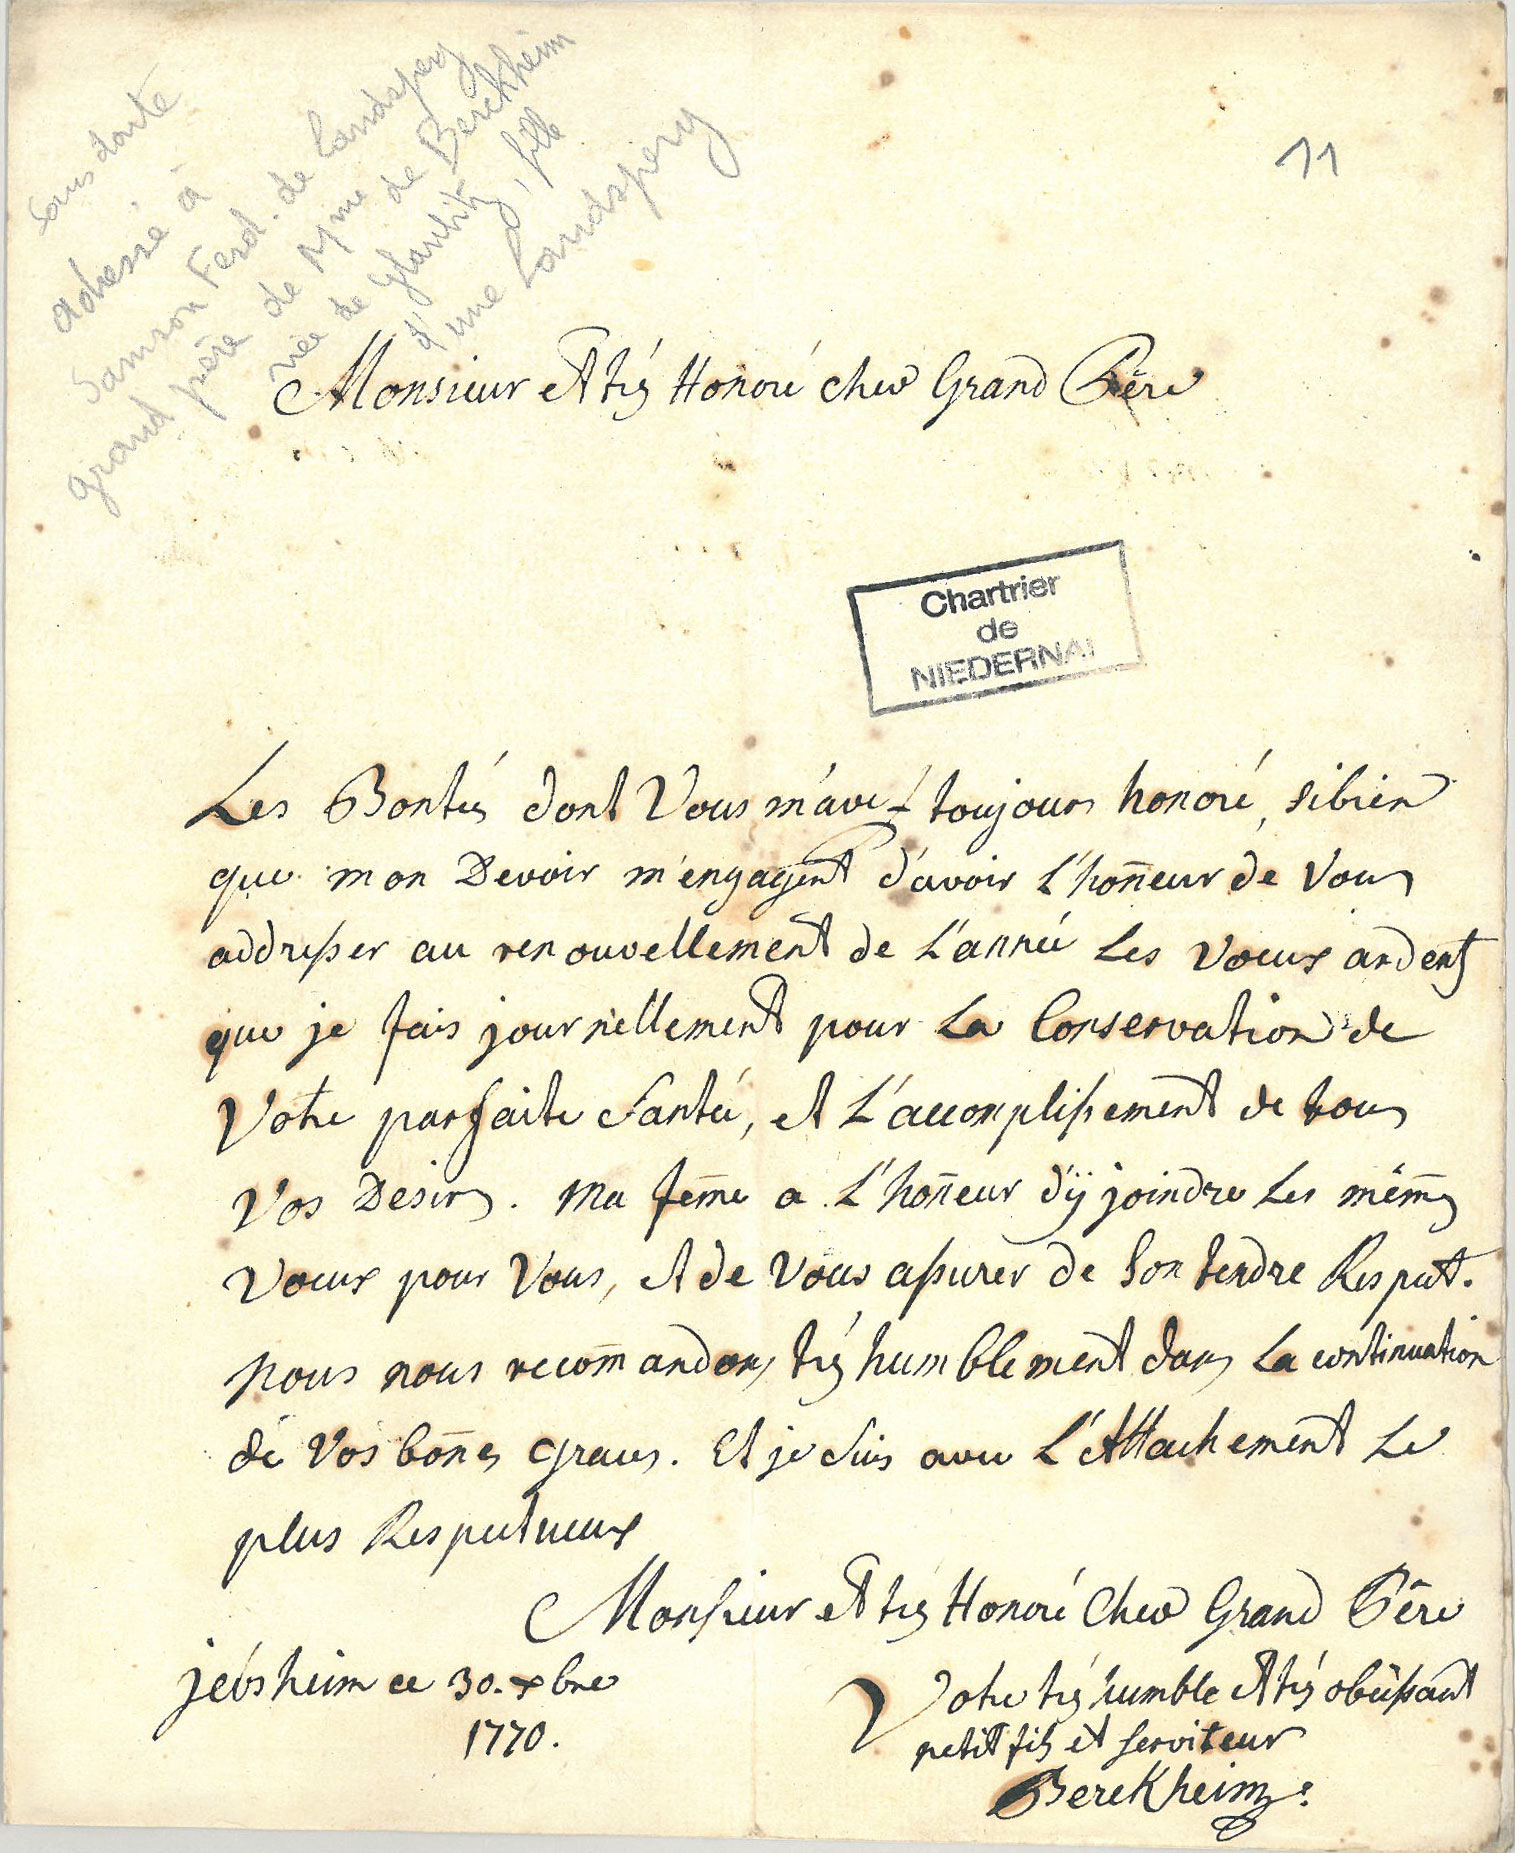 sans doute
adressé à
Samson Ferd. de Landsperg
grand père de Mme de Berckheim
née de Glaubitz, fille
d'une Landsperg
11
Monsieur et trés Honoré cher Grand Père
Chartrier
de
NIEDERNAI
Les Bontés dont Vous m'avez toujours honoré, sibien
que mon Devoir m'engagent d'avoir L'hon̄eur de Vous
addresser au renouvellement de L'année Les Vœux ardents
que je fais journellement pour La Conservation de
Votre parfaite Santé, et L'accomplissement de tous
Vos Desirs. Ma fem̄e a L'hon̄eur d'ÿ joindre Les mêmes
Vœux pour Vous, et de Vous assurer de Son tendre Respect.
Nous nous recom̄andons trés humblement dans La continuation
de Vos bon̄es Graces. Et je suis avec L'Attachement Le
plus Respectueux
Monsieur et trés Honoré Cher Grand Père
jebsheim ce 30. xbre
1770.
Votre trés humble et trés obéissant
petit fils et serviteur
Berckheim